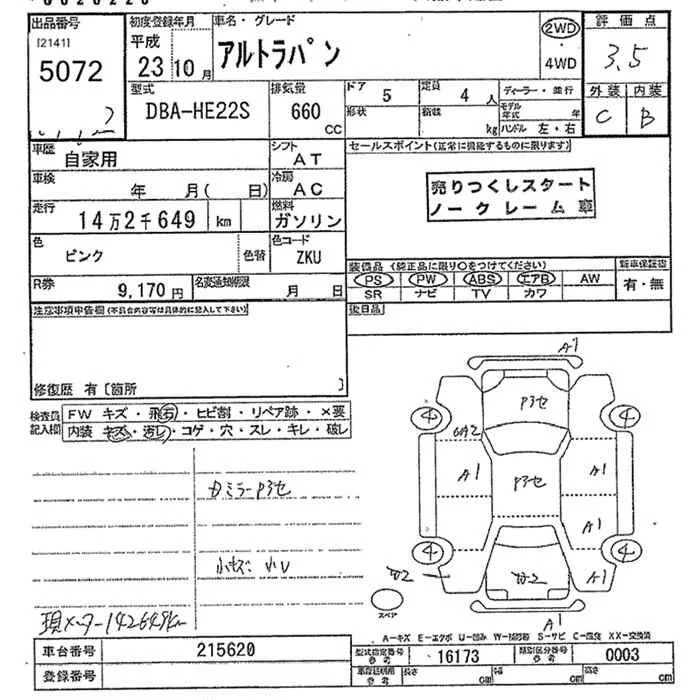 出品番号
[2141]
5072
初度登録年月
平成
23 10月
車名・グレード
アルトラパン
2WD
・
4WD
評価点
3.5
外装 内装
C B
型式
DBA-HE22S
排気量
660
CC
ドア
5
定員
4 人
形状
積載
kg
ディーラー・並行
モデル年式 年
ハンドル 左・右
車歴
自家用
シフト
AT
セールスポイント(正常に機能するものに限ります)
車検
年 月( 日)
冷房
AC
売りつくしスタート
ノークレーム車
走行
14万2千649 km
燃料
ガソリン
色
ピンク
色替
色コード
ZKU
装備品(純正品に限り○をつけてください)
PS PW ABS エアB AW
SR ナビ TV カワ
新車保証書
有・無
R券
9,170 円
名変通知期限
月 日
後日品
注意事項申告欄(不具合内容等は具体的に記入して下さい)
修復歴 有 [箇所 ]
検査員
記入欄
FW キズ・飛石・ヒビ割・リペア跡・×要
内装 キズ・汚レ・コゲ・穴・スレ・キレ・破レ
ガミラーP3セ
小キズ 小U
現メーター142649km
A1
P3セ
4
4
A2
A1
P3セ
A1
A1
4
4
A1
A1
スペア
A-キズ E-エクボ U-凹み W-補修跡 S-サビ C-腐食 XX-交換済
車台番号
215620
登録番号
型式指定番号
参考
16173
類別区分番号
参考
0003
参考
長さ cm
幅 cm
高さ cm